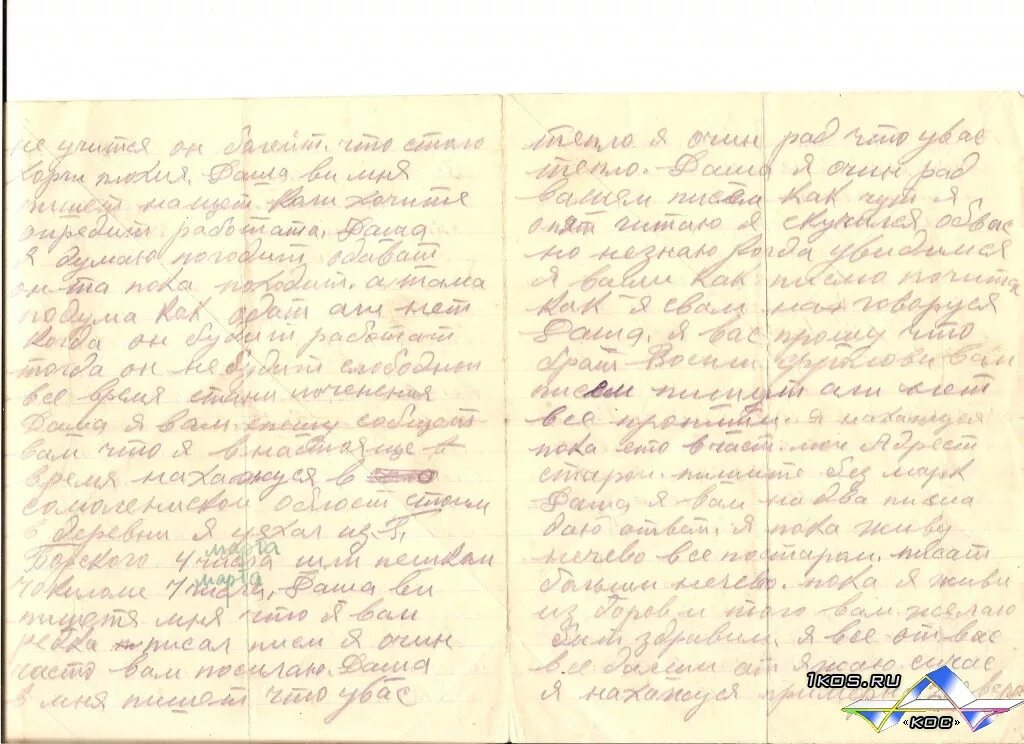 не учится онболеит. что стаю
Харчи плохия. Даша ви мня
пишет нащет Коли хочите
определит работата. Даша
я думаю погодит одават
он-та пока походит. а тама
подума как одат али нет
когда он будит работат
тогда он не будит слободнои
все время
Даша я вам спешу собщет
вам что я внастояще в
время нахажуся в
смоленискои област стоим
в деревни я уехал из. Г.
Борского 4 числа марта шли пешком
70 киломе 7 числа марта, Даша ви
пишетя мня что я вам
редка писал писм я очин
часто вам посилаю. Даша
в мня пишет что увас
тепло я очин рад что увас
тепло. Даша я очин рад
вашем писма как чут я
опят читаю я скучился обвас
но незнаю когда увидимся
я ваши как писмо почита
как я свами нановоруся
Даша. я вас прошу что
брат Васили вам
писем пишут али нет
все пропиши. я нахажуся
пока ето вчаст. мои Адрест
старои. пишите без марк
Даша я вам на два писма
даю ответ. я пока живу
нечево все постаром. писат
больши нечево. пока я живи
из доров и того вам желаю
бит здравим. я все от вас
все дали ат
я нахажуся примерна
1KOS.RU
«КОС»